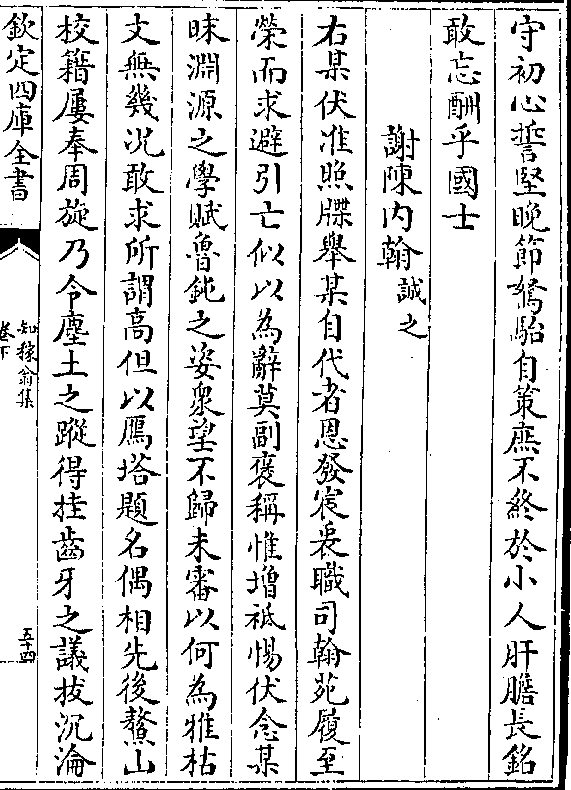 守初心誓堅晚節駑駘自策庶不終於小人肝膽長銘
敢忘酬乎國士
謝陳内翰誠之
右某伏准照牒舉某自代者恩發宸衷職司翰苑履至
榮而求避引亡似以為辭莫副褒稱惟增祗惕伏念某
昧淵源之學賦魯鈍之姿衆望不歸未審以何為雅枯
文無幾況敢求所謂高但以鴈塔題名偶相先後鰲山
校籍屢奉周旋乃令塵土之蹤得挂齒牙之議拔沉淪
欽定四庫全書
知稼翁集
卷下
五十四